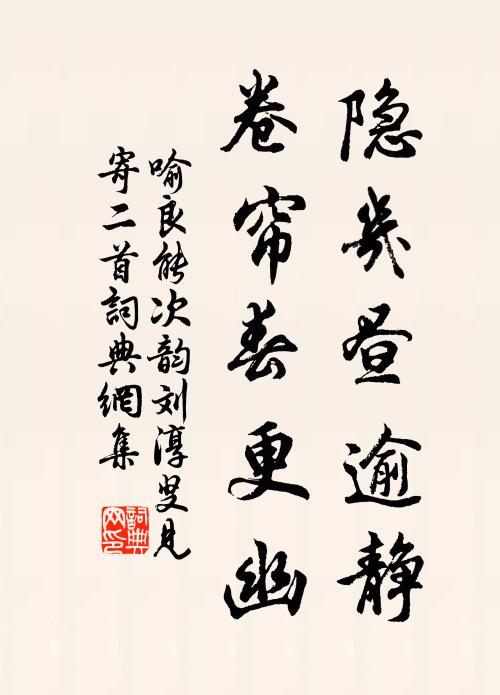 隐幾昼逾静
卷帘春更幽
喻良能次韵刘淳叟见
寄二首詞典網集
詞典网印